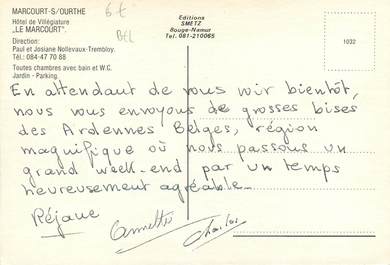 MARCOURT-S/OURTHE
Hôtel de Villégiature
„LE MARCOURT".
Direction:
Paul et Josiane Nollevaux-Trembloy.
Tél.: 084-47 70 88
Toutes chambres avec bain et W.C.
Jardin - Parking.
6 €
BEL
Editions
SMETZ
Bouge-Namur
Tel. 081-210065
1032
En attendant de vous voir bientôt,
nous vous envoyons de grosses bises
des Ardennes Belges, région
magnifique où nous passons un
grand week-end par un temps
heureusement agréable..
Réjane
Annette
Charles